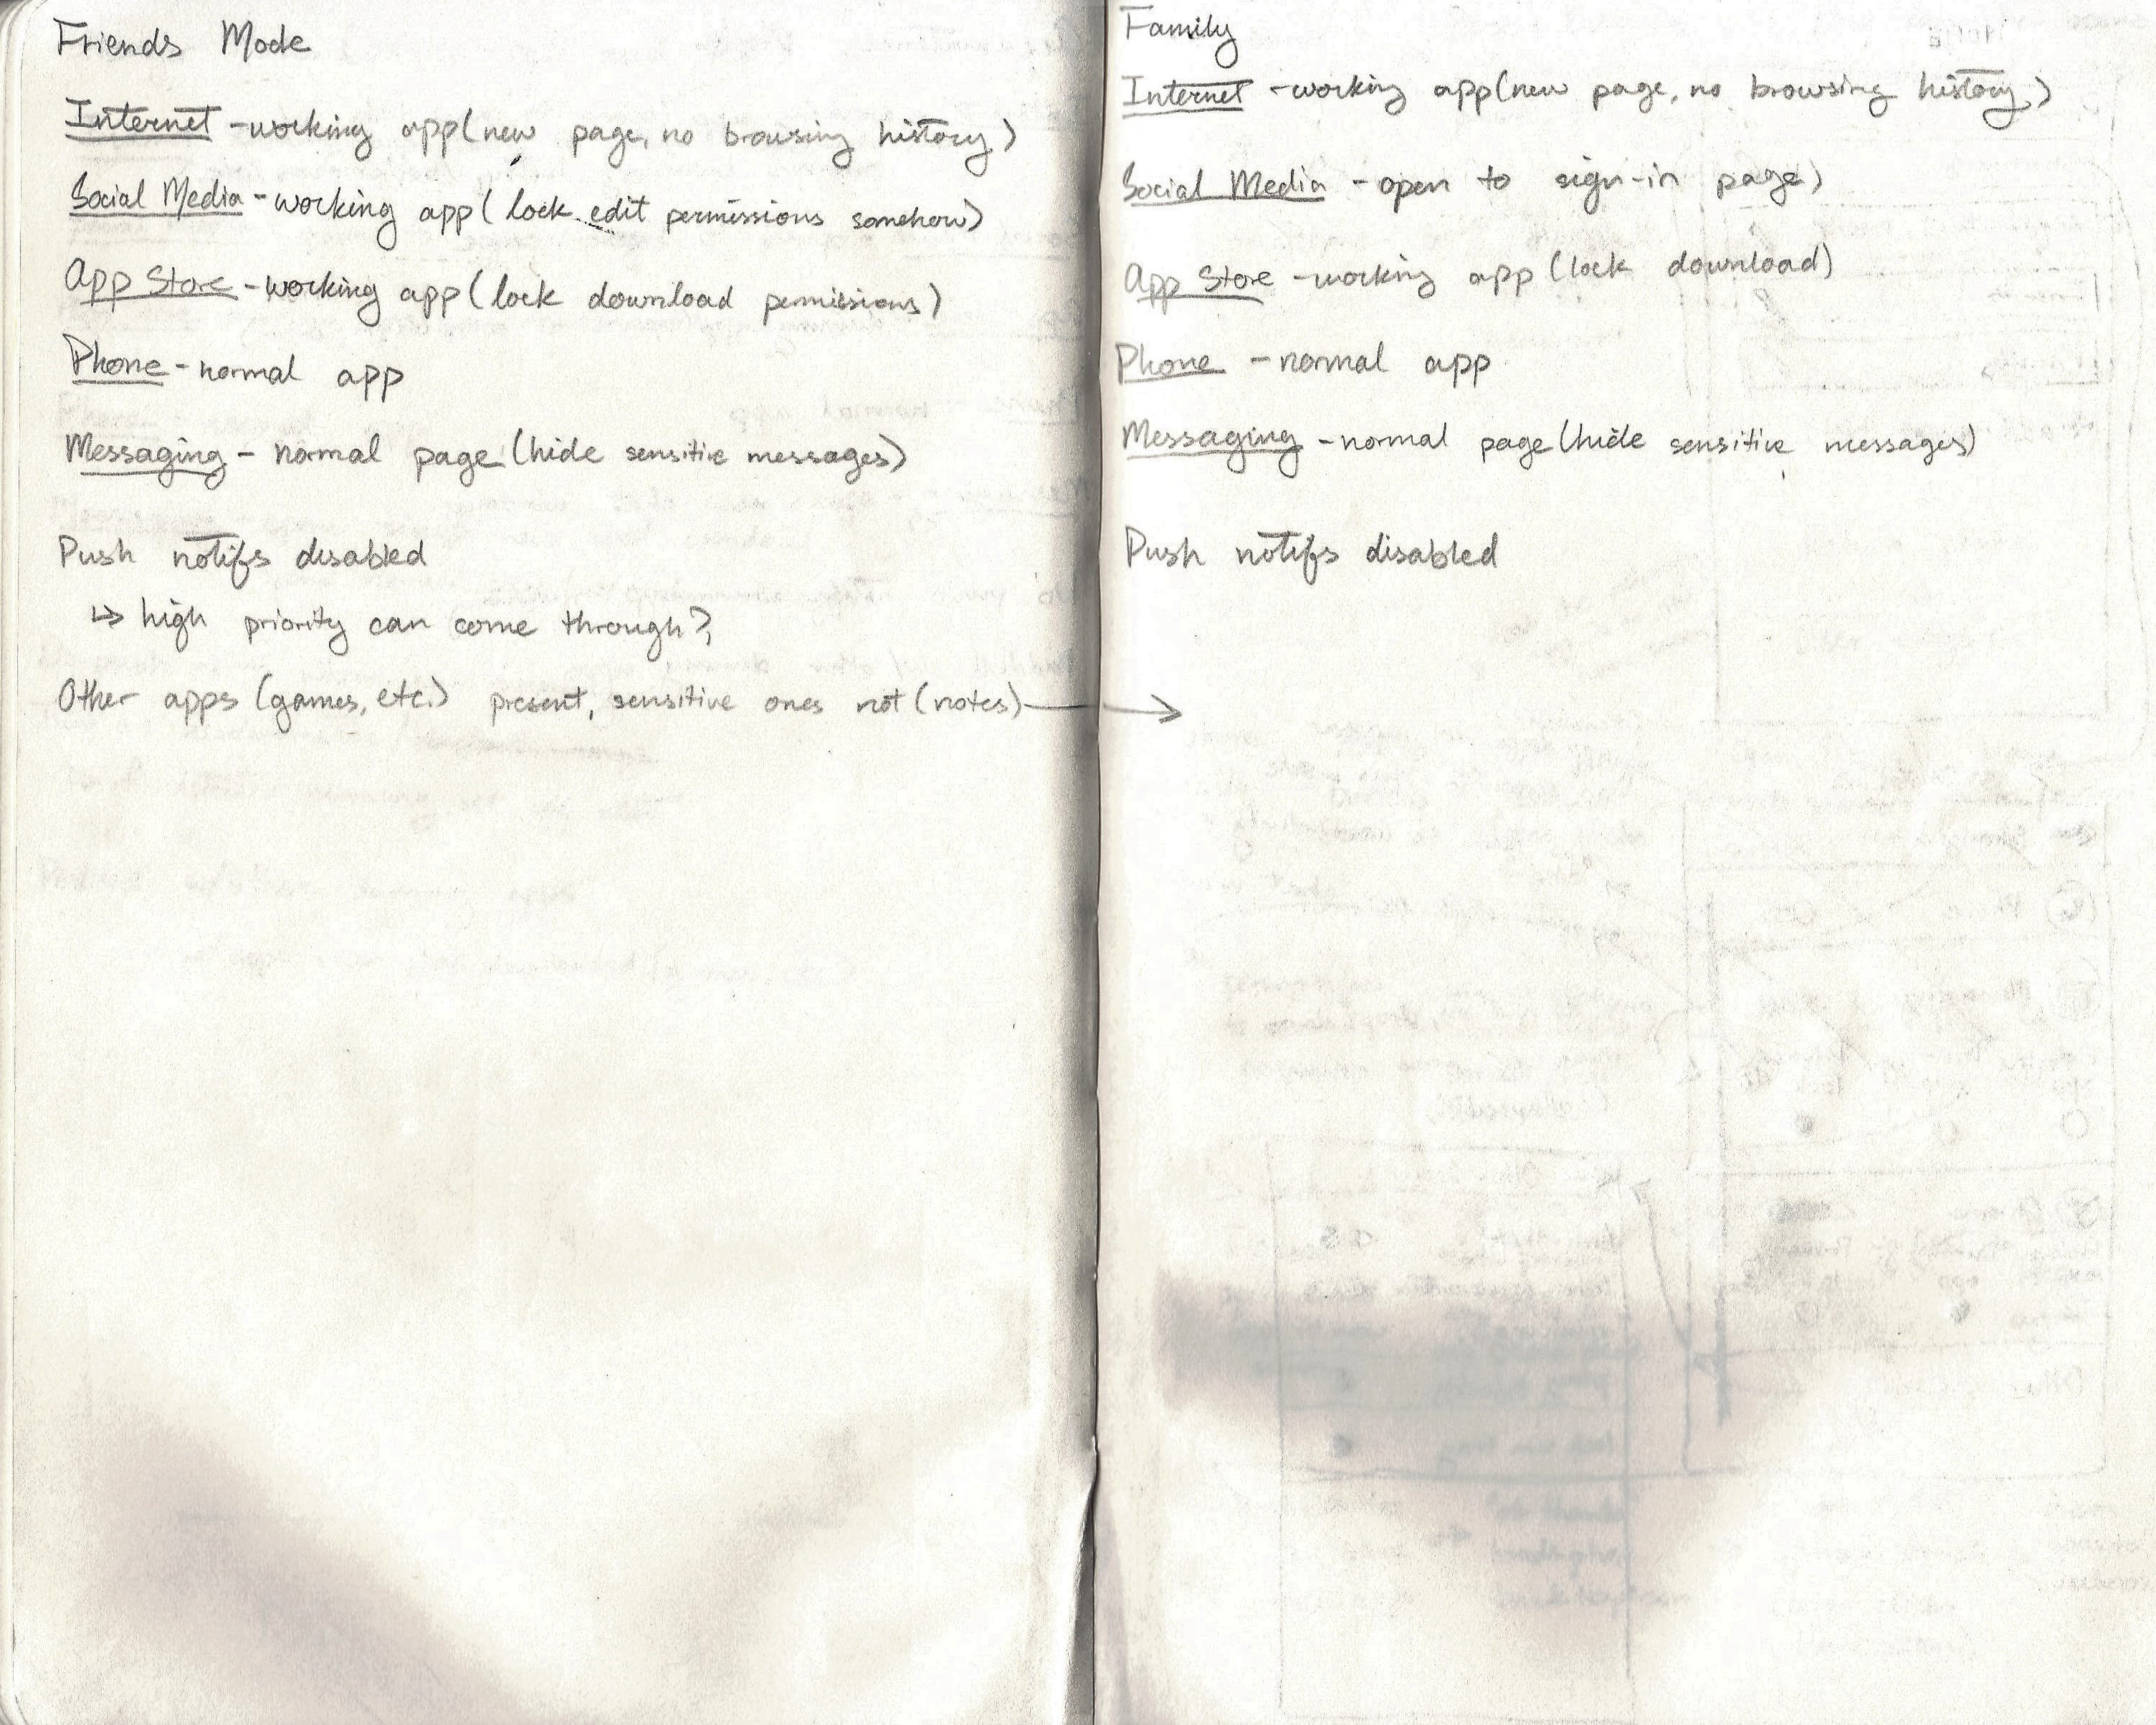 Friends Mode
Internet - working app (new page, no browsing history)
Social Media - working app ( lock edit permissions somehow)
App Store - working app ( lock download permissions)
Phone - normal app
Messaging - normal page (hide sensitive messages)
Push notifs disabled
↳ high priority can come through?
Other apps (games, etc.) present, sensitive ones not (notes) →
Family
Internet - working app (new page, no browsing history)
Social Media - open to sign-in page)
App Store - working app (lock download)
Phone - normal app
Messaging - normal page (hide sensitive messages)
Push notifs disabled